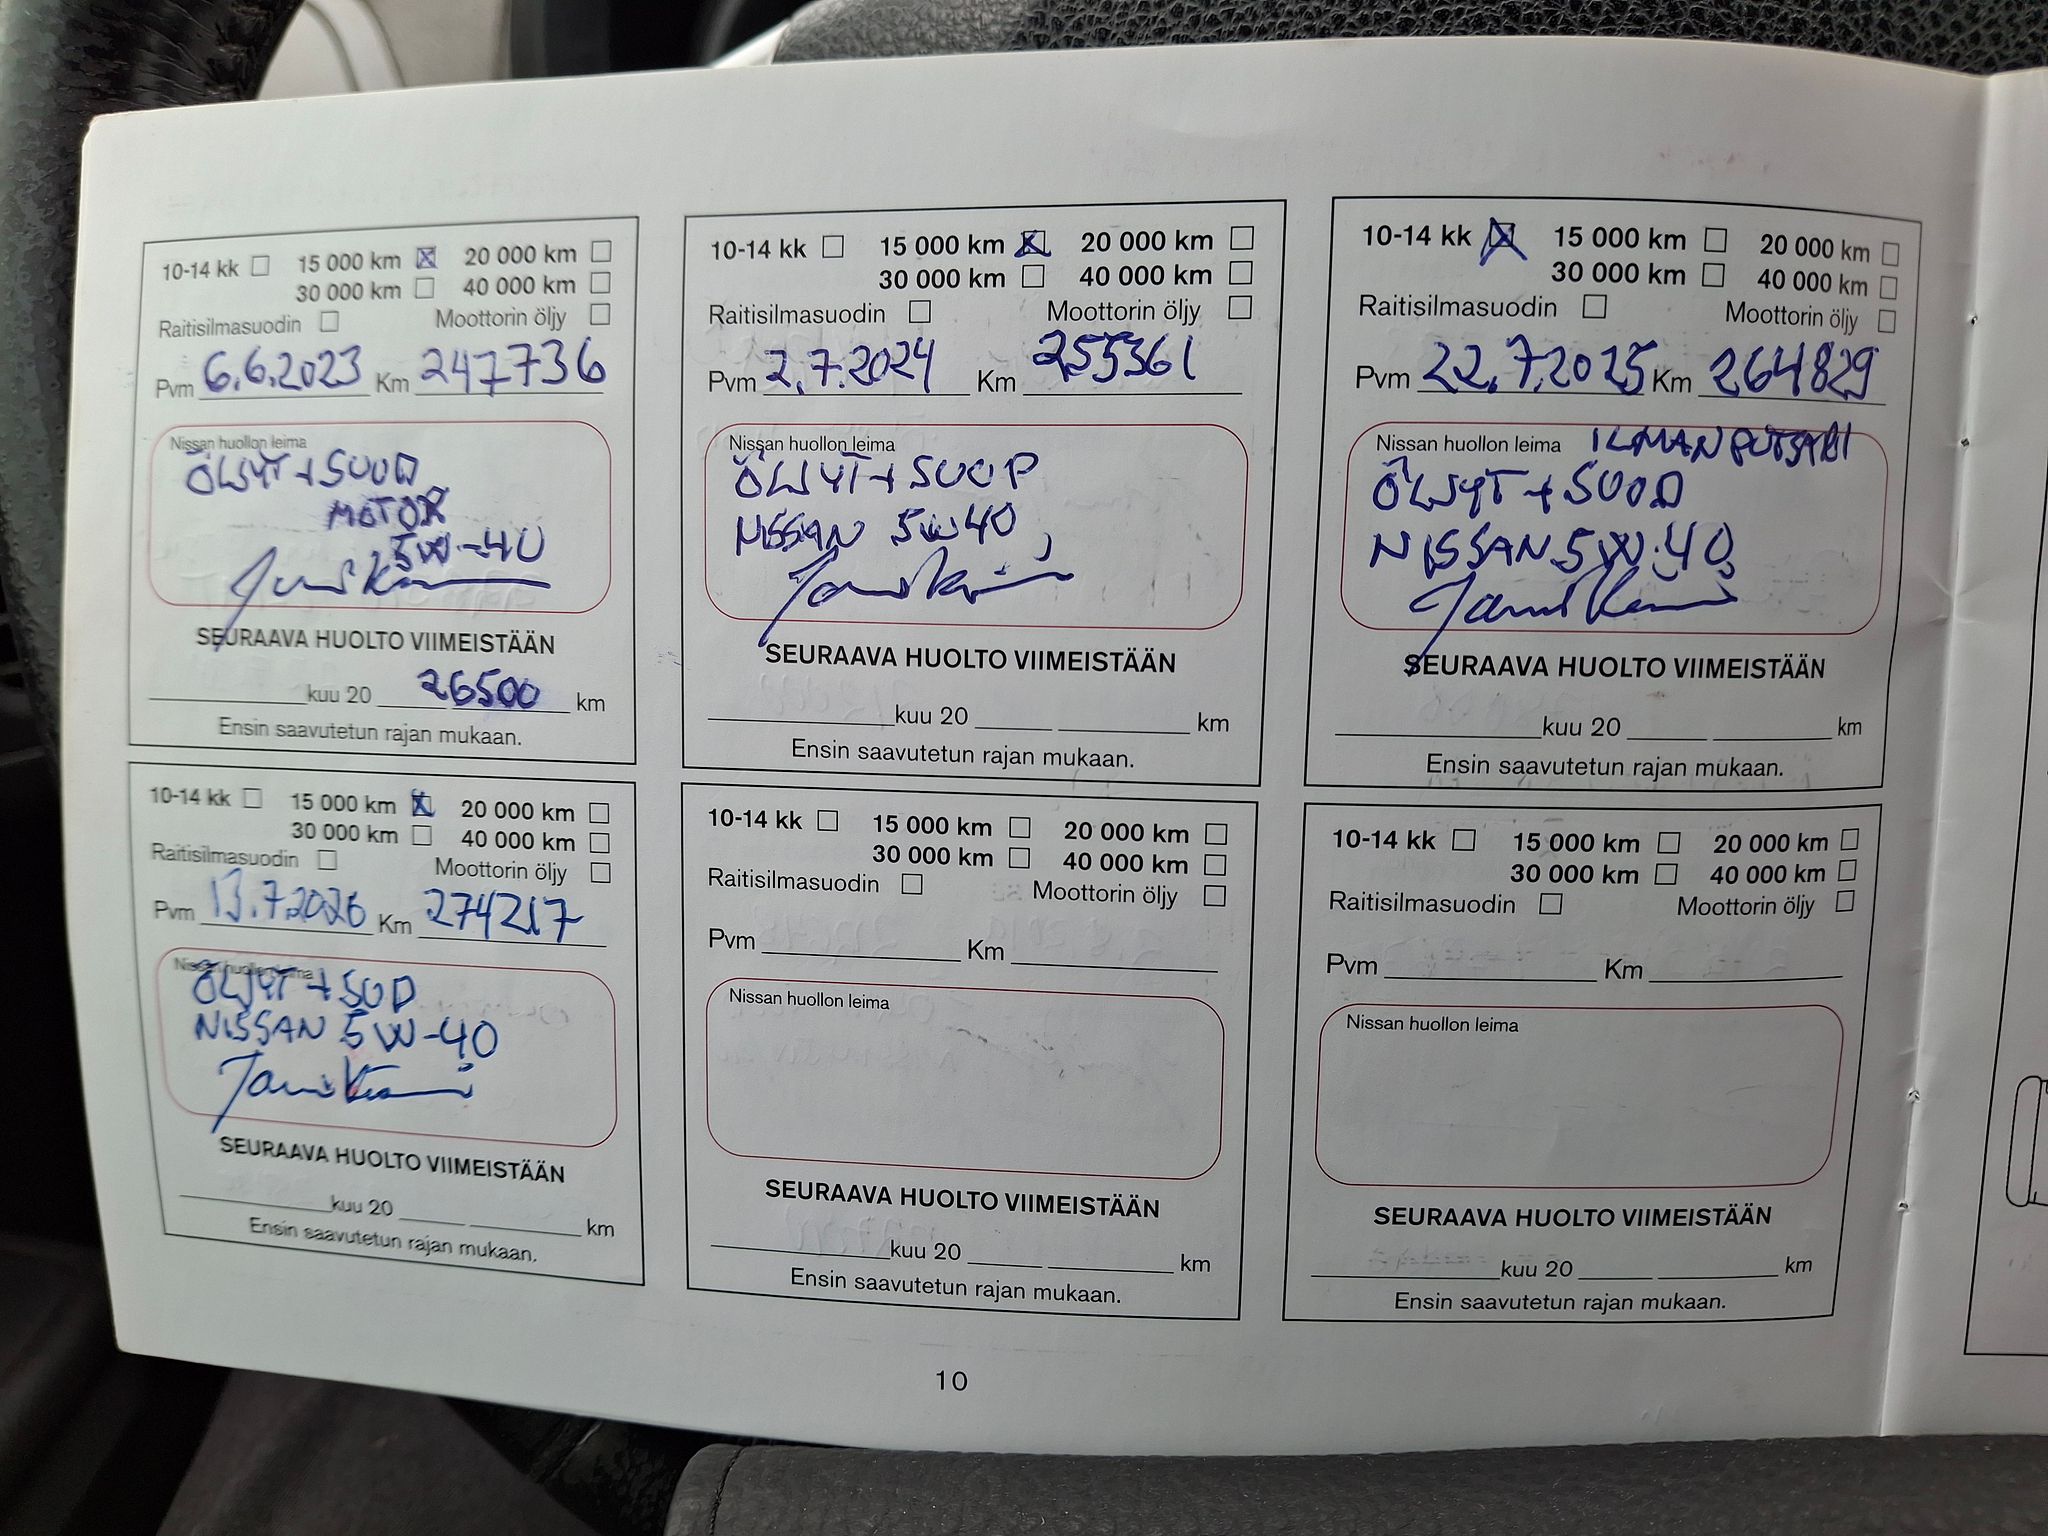 10-14 kk 15 000 km 20 000 km
30 000 km 40 000 km
Raitisilmasuodin Moottorin öljy
Pvm 6.6.2023 Km 247736
Nissan huollon leima
ÖLJYT + SUOD
MOTOR
5W-40
SEURAAVA HUOLTO VIIMEISTÄÄN
kuu 20 26500 km
Ensin saavutetun rajan mukaan.
10-14 kk 15 000 km 20 000 km
30 000 km 40 000 km
Raitisilmasuodin Moottorin öljy
Pvm 2.7.2024 Km 255361
Nissan huollon leima
ÖLJYT + SUOD
NISSAN 5W40
SEURAAVA HUOLTO VIIMEISTÄÄN
kuu 20 km
Ensin saavutetun rajan mukaan.
10-14 kk 15 000 km 20 000 km
30 000 km 40 000 km
Raitisilmasuodin Moottorin öljy
Pvm 22.7.2025 Km 264829
Nissan huollon leima ILMAN
ÖLJYT + SUOD
NISSAN 5W-40
SEURAAVA HUOLTO VIIMEISTÄÄN
kuu 20 km
Ensin saavutetun rajan mukaan.
10-14 kk 15 000 km 20 000 km
30 000 km 40 000 km
Raitisilmasuodin Moottorin öljy
Pvm 13.7.2026 Km 274217
Nissan huollon leima
ÖLJYT + SUOD
NISSAN 5W-40
SEURAAVA HUOLTO VIIMEISTÄÄN
kuu 20 km
Ensin saavutetun rajan mukaan.
10-14 kk 15 000 km 20 000 km
30 000 km 40 000 km
Raitisilmasuodin Moottorin öljy
Pvm Km
Nissan huollon leima
SEURAAVA HUOLTO VIIMEISTÄÄN
kuu 20 km
Ensin saavutetun rajan mukaan.
10-14 kk 15 000 km 20 000 km
30 000 km 40 000 km
Raitisilmasuodin Moottorin öljy
Pvm Km
Nissan huollon leima
SEURAAVA HUOLTO VIIMEISTÄÄN
kuu 20 km
Ensin saavutetun rajan mukaan.
10